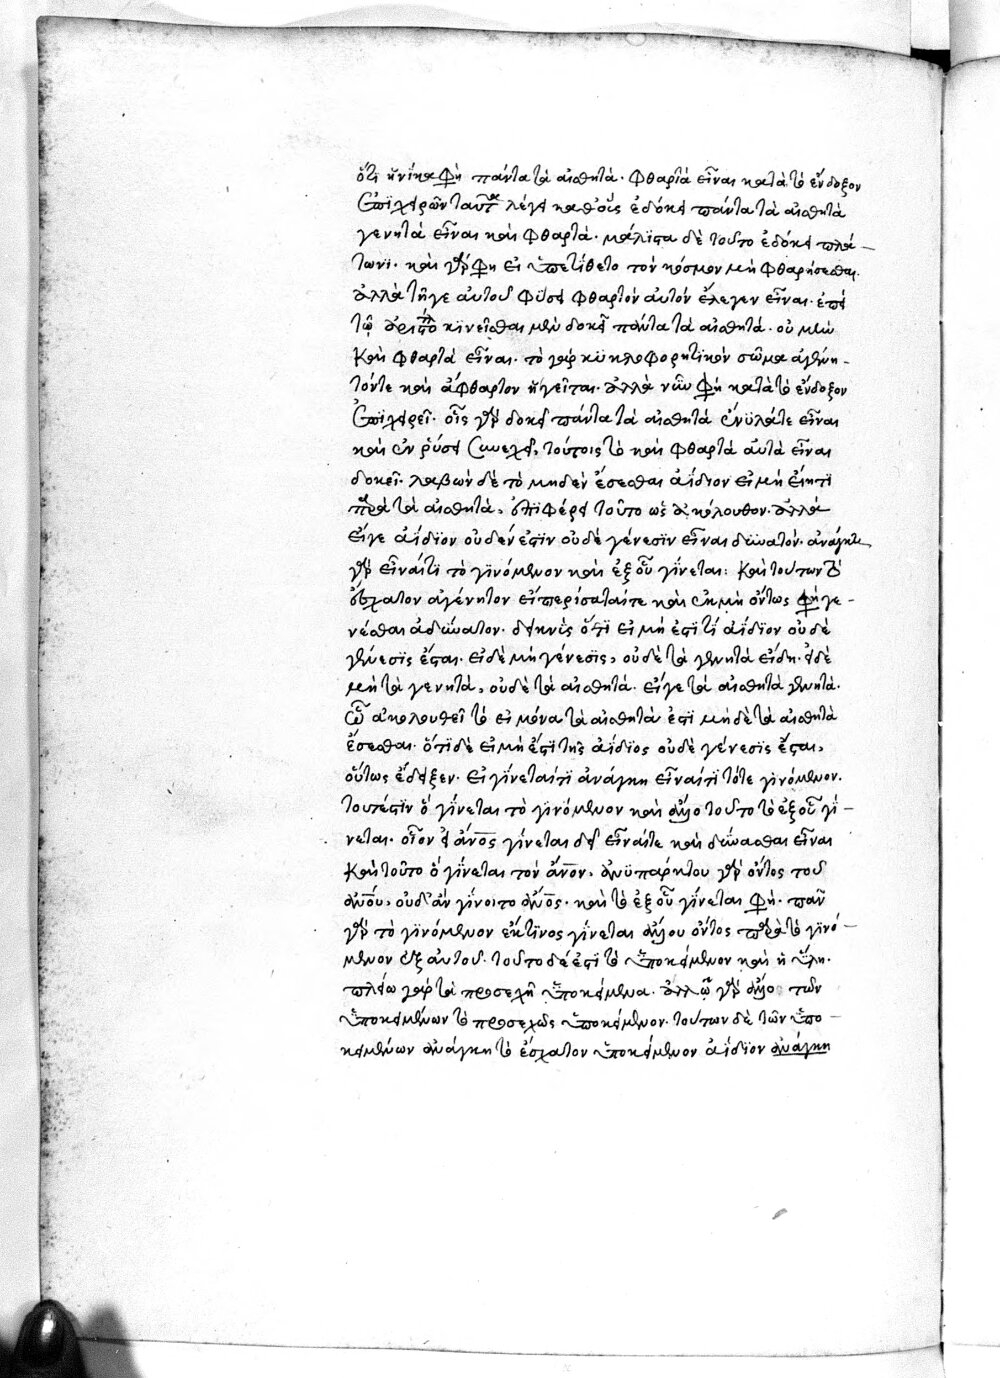 ὅτι ἡνίκα φη πάντα τὰ αἰσθητὰ. φθαρτὰ εἶναι κατὰ τὸ ἔνδοξον
ἐπιχειρῶν ταῦτα λέγει καθ' οἷς ἐδόκει πάντα τὰ αἰσθητὰ
γενητὰ εἶναι καὶ φθαρτά. μάλιστα δὲ τοῦτο ἐδόκει πλά-
τωνι. καὶ γὰρ φη εἰ ὑπετίθετο τὸν κόσμον μὴ φθαρήσεσθαι.
ἀλλὰ τῆ γε αὐτοῦ φύσει φθαρτὸν αὐτὸν ἔλεγεν εἶναι. ἐπεὶ
τῶ ἀριστο κινεῖσθαι μὲν δοκεῖ πάντα τὰ αἰσθητά. οὐ μὲν
καὶ φθαρτὰ εἶναι. τὸ γὰρ κυκλοφορητικὸν σῶμα ἀγένη-
τόν τε καὶ ἄφθαρτον ἡγεῖται. ἀλλὰ νῦν φη κατὰ τὸ ἔνδοξον
ἐπιχειρεῖ. οἷς γὰρ δοκεῖ πάντα τὰ αἰσθητὰ ἐνυλά τε εἶναι
καὶ ἐν ῥύσει συνεχεῖ, τούτοις τὸ καὶ φθαρτὰ αὐτὰ εἶναι
δοκεῖ. λαβὼν δὲ τὸ μηδὲν ἔσεσθαι ἀΐδιον εἰ μὴ εἴη τι
παρὰ τὰ αἰσθητά, ἐπιφέρει τοῦτο ὡς ἀκόλουθον. ἀλλὰ
εἴγε ἀΐδιον οὐδέν ἐστιν οὐδὲ γένεσιν εἶναι δυνατόν. ἀνάγκη
γὰρ εἶναί τι τὸ γινόμενον καὶ ἐξ οὗ γίνεται: καὶ τούτων τὸ
ἔσχατον ἀγένητον εἴπερ ἵσταταί τε καὶ ἐκ μὴ ὄντως φη γε-
νέσθαι ἀδύνατον. δεικνὺς ὅτι εἰ μή ἐστι τί ἀΐδιον οὐδὲ
γένεσις ἔσται. εἰ δὲ μὴ γένεσις, οὐδὲ τὰ γενητὰ εἴδη. εἰ δὲ
μὴ τὰ γενητά, οὐδὲ τὰ αἰσθητά. εἴγε τὰ αἰσθητὰ γενητά.
ὧ ἀκολουθεῖ τὸ εἰ μόνα τὰ αἰσθητά ἐστι μηδὲ τὰ αἰσθητὰ
ἔσεσθαι. ὅτι δὲ εἰ μή ἐστί τις ἀίδιος οὐδὲ γένεσις ἔσται,
οὕτως ἔδειξεν. εἰ γίνεταί τι ἀνάγκη εἶναί τι τότε γινόμενον.
τουτέστιν ὅ γίνεται τὸ γινόμενον καὶ ἄλλο τοῦτο τὸ ἐξ οὗ γί-
νεται. οἷον εἰ ἄνος γίνεται δεῖ εἶναί τε καὶ δύνασθαι εἶναι
καὶ τοῦτο ὅ γίνεται τὸν ἄνον. ἀνυπάρκτου γὰρ ὄντος τοῦ
ἀνου, οὐδ' ἂν γίνοιτο ἄνος. καὶ τὸ ἐξ οὗ γίνεται φη. πᾶν
γὰρ τὸ γινόμενον ἔκ τινος γίνεται ἄλλου ὄντος παρὰ τὸ γινό-
μενον ἐξ αὐτοῦ. τοῦτο δέ ἐστι τὸ ὑποκείμενον καὶ ἡ ὕλη.
πλείω γὰρ τὰ προσεχῆ ὑποκείμενα. ἄλλω γὰρ ἄλλο τῶν
ὑποκειμένων τὸ προσεχῶς ὑποκείμενον. τούτων δὲ τῶν ὑπο-
κειμένων ἀνάγκη τὸ ἔσχατον ὑποκείμενον ἀΐδιον ἀνάγκη